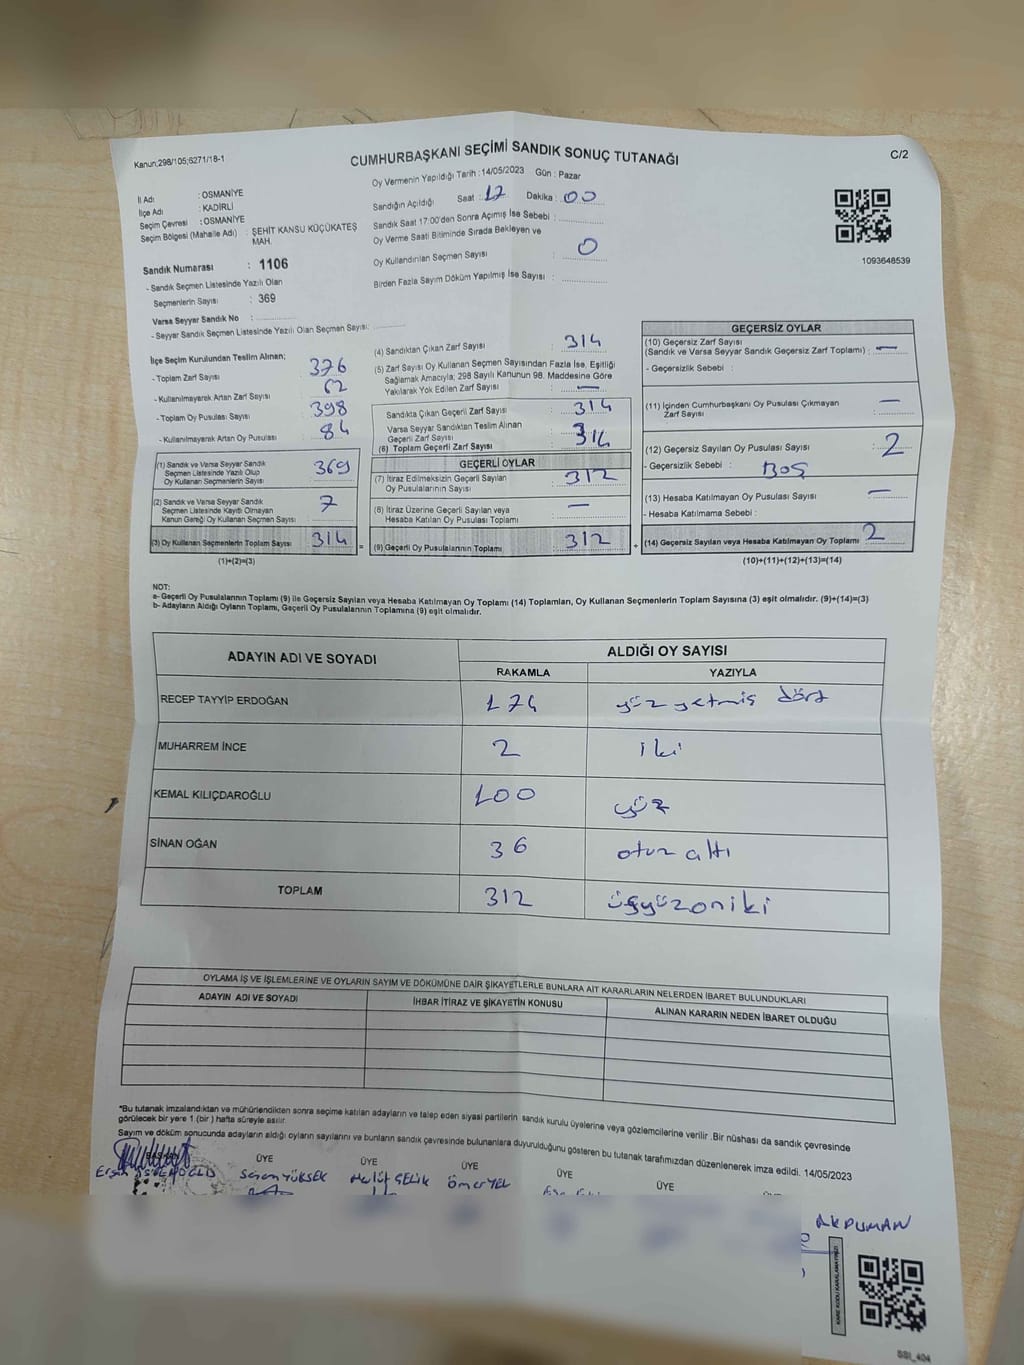 Kanun;298/105;6271/18-1
CUMHURBAŞKANI SEÇİMİ SANDIK SONUÇ TUTANAĞI
C/2
İl Adı : OSMANİYE
İlçe Adı : KADİRLİ
Seçim Çevresi : OSMANİYE
Seçim Bölgesi (Mahalle Adı) : ŞEHİT KANSU KÜÇÜKATEŞ
MAH.
Sandık Numarası : 1106
- Sandık Seçmen Listesinde Yazılı Olan
Seçmenlerin Sayısı : 369
Varsa Seyyar Sandık No :
- Seyyar Sandık Seçmen Listesinde Yazılı Olan Seçmen Sayısı:
Oy Vermenin Yapıldığı Tarih : 14/05/2023 Gün : Pazar
Sandığın Açıldığı Saat : 17 Dakika : 00
Sandık Saat 17:00'den Sonra Açılmış İse Sebebi :
Oy Verme Saati Bitiminde Sırada Bekleyen ve
Oy Kullandırılan Seçmen Sayısı : 0
Birden Fazla Sayım Döküm Yapılmış İse Sayısı :
1093648539
İlçe Seçim Kurulundan Teslim Alınan;
- Toplam Zarf Sayısı 376
- Kullanılmayarak Artan Zarf Sayısı 62
- Toplam Oy Pusulası Sayısı 398
- Kullanılmayarak Artan Oy Pusulası 84
(1) Sandık ve Varsa Seyyar Sandık
Seçmen Listesinde Yazılı Olup
Oy Kullanan Seçmenlerin Sayısı: 369
(2) Sandık ve Varsa Seyyar Sandık
Seçmen Listesinde Kayıtlı Olmayan
Kanun Gereği Oy Kullanan Seçmen Sayısı : 7
(3) Oy Kullanan Seçmenlerin Toplam Sayısı 314
(1)+(2)=(3)
(4) Sandıktan Çıkan Zarf Sayısı : 314
(5) Zarf Sayısı Oy Kullanan Seçmen Sayısından Fazla İse, Eşitliği
Sağlamak Amacıyla; 298 Sayılı Kanunun 98. Maddesine Göre
Yakılarak Yok Edilen Zarf Sayısı : —
Sandıkta Çıkan Geçerli Zarf Sayısı : 314
Varsa Seyyar Sandıktan Teslim Alınan
Geçerli Zarf Sayısı :
(6) Toplam Geçerli Zarf Sayısı 314
GEÇERLİ OYLAR
(7) İtiraz Edilmeksizin Geçerli Sayılan
Oy Pusulalarının Sayısı : 312
(8) İtiraz Üzerine Geçerli Sayılan veya
Hesaba Katılan Oy Pusulası Toplamı : —
(9) Geçerli Oy Pusulalarının Toplamı : 312
GEÇERSİZ OYLAR
(10) Geçersiz Zarf Sayısı
(Sandık ve Varsa Seyyar Sandık Geçersiz Zarf Toplamı) : —
- Geçersizlik Sebebi :
(11) İçinden Cumhurbaşkanı Oy Pusulası Çıkmayan
Zarf Sayısı : —
(12) Geçersiz Sayılan Oy Pusulası Sayısı : 2
- Geçersizlik Sebebi : BOŞ
(13) Hesaba Katılmayan Oy Pusulası Sayısı : —
- Hesaba Katılmama Sebebi :
(14) Geçersiz Sayılan veya Hesaba Katılmayan Oy Toplamı : 2
(10)+(11)+(12)+(13)=(14)
NOT:
a- Geçerli Oy Pusulalarının Toplamı (9) ile Geçersiz Sayılan veya Hesaba Katılmayan Oy Toplamı (14) Toplamları, Oy Kullanan Seçmenlerin Toplam Sayısına (3) eşit olmalıdır. (9)+(14)=(3)
b- Adayların Aldığı Oyların Toplamı, Geçerli Oy Pusulalarının Toplamına (9) eşit olmalıdır.
ADAYIN ADI VE SOYADI ALDIĞI OY SAYISI
RAKAMLA YAZIYLA
RECEP TAYYİP ERDOĞAN 174 yüz yetmiş dört
MUHARREM İNCE 2 iki
KEMAL KILIÇDAROĞLU 100 yüz
SİNAN OĞAN 36 otuz altı
TOPLAM 312 üçyüzoniki
OYLAMA İŞ VE İŞLEMLERİNE VE OYLARIN SAYIM VE DÖKÜMÜNE DAİR ŞİKAYETLERLE BUNLARA AİT KARARLARIN NELERDEN İBARET BULUNDUKLARI
ADAYIN ADI VE SOYADI İHBAR İTİRAZ VE ŞİKAYETİN KONUSU ALINAN KARARIN NEDEN İBARET OLDUĞU
*Bu tutanak imzalandıktan ve mühürlendikten sonra seçime katılan adayların ve talep eden siyasi partilerin sandık kurulu üyelerine veya gözlemcilerine verilir .Bir nüshası da sandık çevresinde
görülecek bir yere 1 (bir ) hafta süreyle asılır.
Sayım ve döküm sonucunda adayların aldığı oyların sayılarını ve bunların sandık çevresinde bulunanlara duyurulduğunu gösteren bu tutanak tarafımızdan düzenlenerek imza edildi. 14/05/2023
BAŞKAN ÜYE ÜYE ÜYE ÜYE ÜYE
YÜKSEK ÇELİK ÖMER YEL
AKDUMAN
KARE KODU KARALAMAYINIZ!
SSI_404